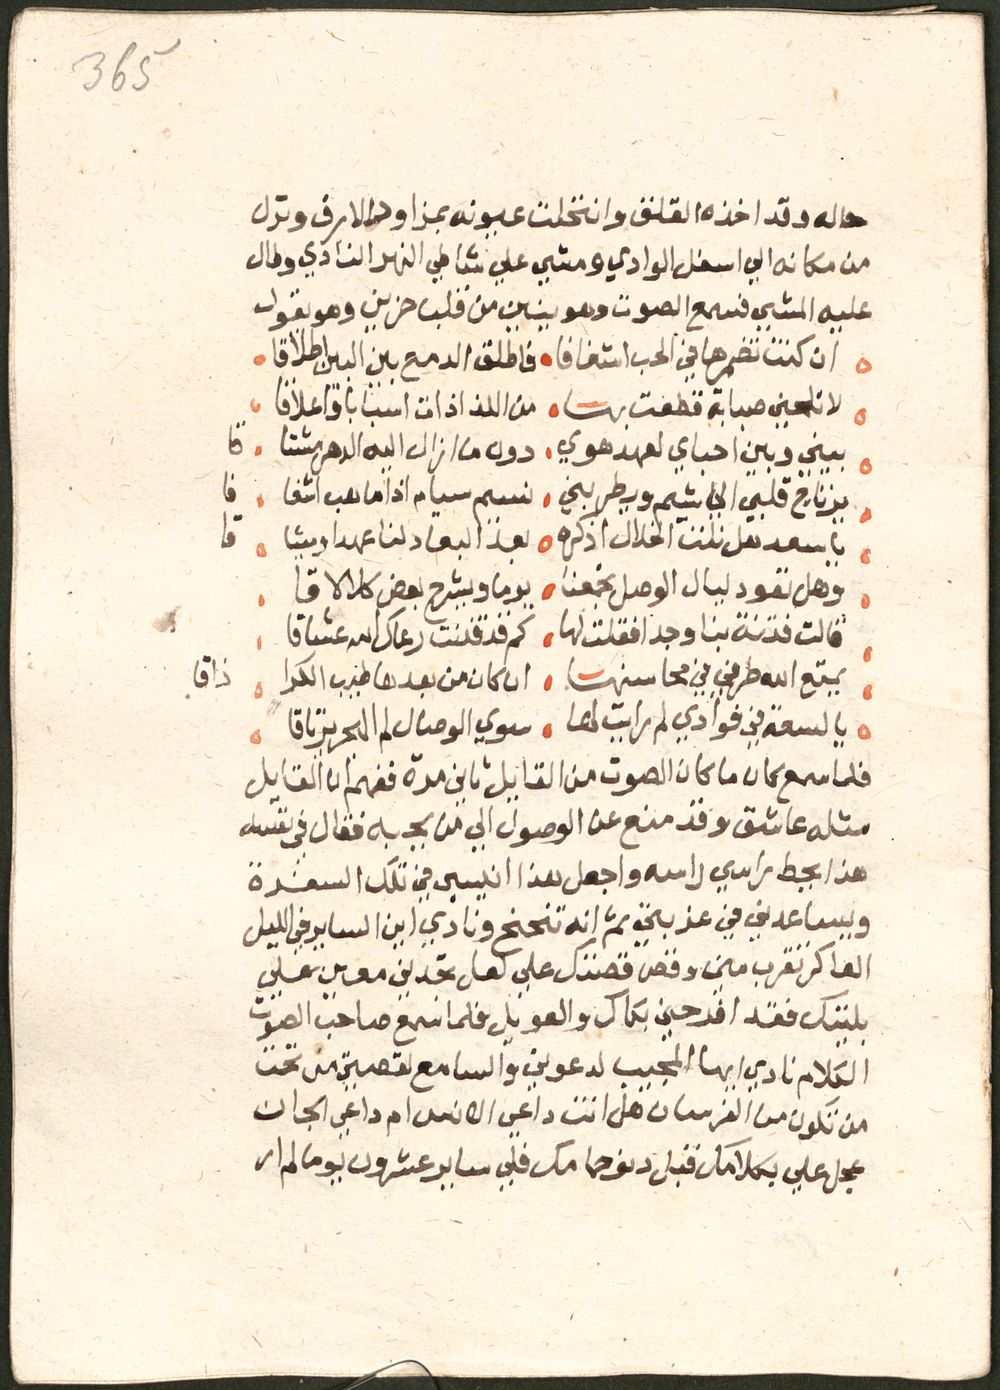 365
حاله وقد اخذه القلق وانتحلت عيونه بمراود الارق ونزل
من مكانه الي اسفل الوادي ومشي علي شاطي النهر النادي وطال
عليه المشي فسمع الصوت وهو يئن من قلب حزين وهو يقول
ان كنت تضمرها في الحب اشفاقا • فاطلق الدمع بين البين اطلاقا
لا تلحني صبابة قطعت بها • من اللذاذات اسبابا واعلاقا
بيني وبين احباي لعهد هوي • دون ما ازال اليه الدهر مشتاقا
يرتاح قلبي الي شيم ويطربني • نسيم اذا ما هب اشفاقا
يا سعد هل الخلال اذكره • بعد البعاد لنا عهدا وميثاقا
وهل تعود ليال الوصل تجمعنا • يوما ويشرح بعض كلا لاقا
قالت فتنة بنا وجدا فقلت لها • كم قد قتلت رعاك الله عشاقا
يمتع الله طرفي في محاسنها • ان كان من بعدها طيب الكرا ذاقا
يا لسعة في فوادي لم رايت لها • سوي الوصال لم المحر ترياقا
فلما سمع كان ما كان الصوت من القايل ثاني مرة ففهم ان القايل
مثله عاشق وقد منع عن الوصول الي من يحبه فقال في نفسه
هذا يحط راسي لراسه واجعل هذا انيسي في تلك السفرة
ويساعدني في غربتي ثم انه تنحنح ونادي اين الساير في الليل
العاكر تقرب مني وقص قصتك علي لعل تجدني معين علي
بليتك فقد اقرحني بكاك والعويل فلما سمع صاحب الصوت
الكلام نادي ايها المجيب لدعوتي والسامع لقصتي من تحت
من تكون من الفرسان هل انت داعي الانس ام داعي الجان
عجل علي بكلامك قبل دنو حمامك فلي ساير عشرون يوما لم ار